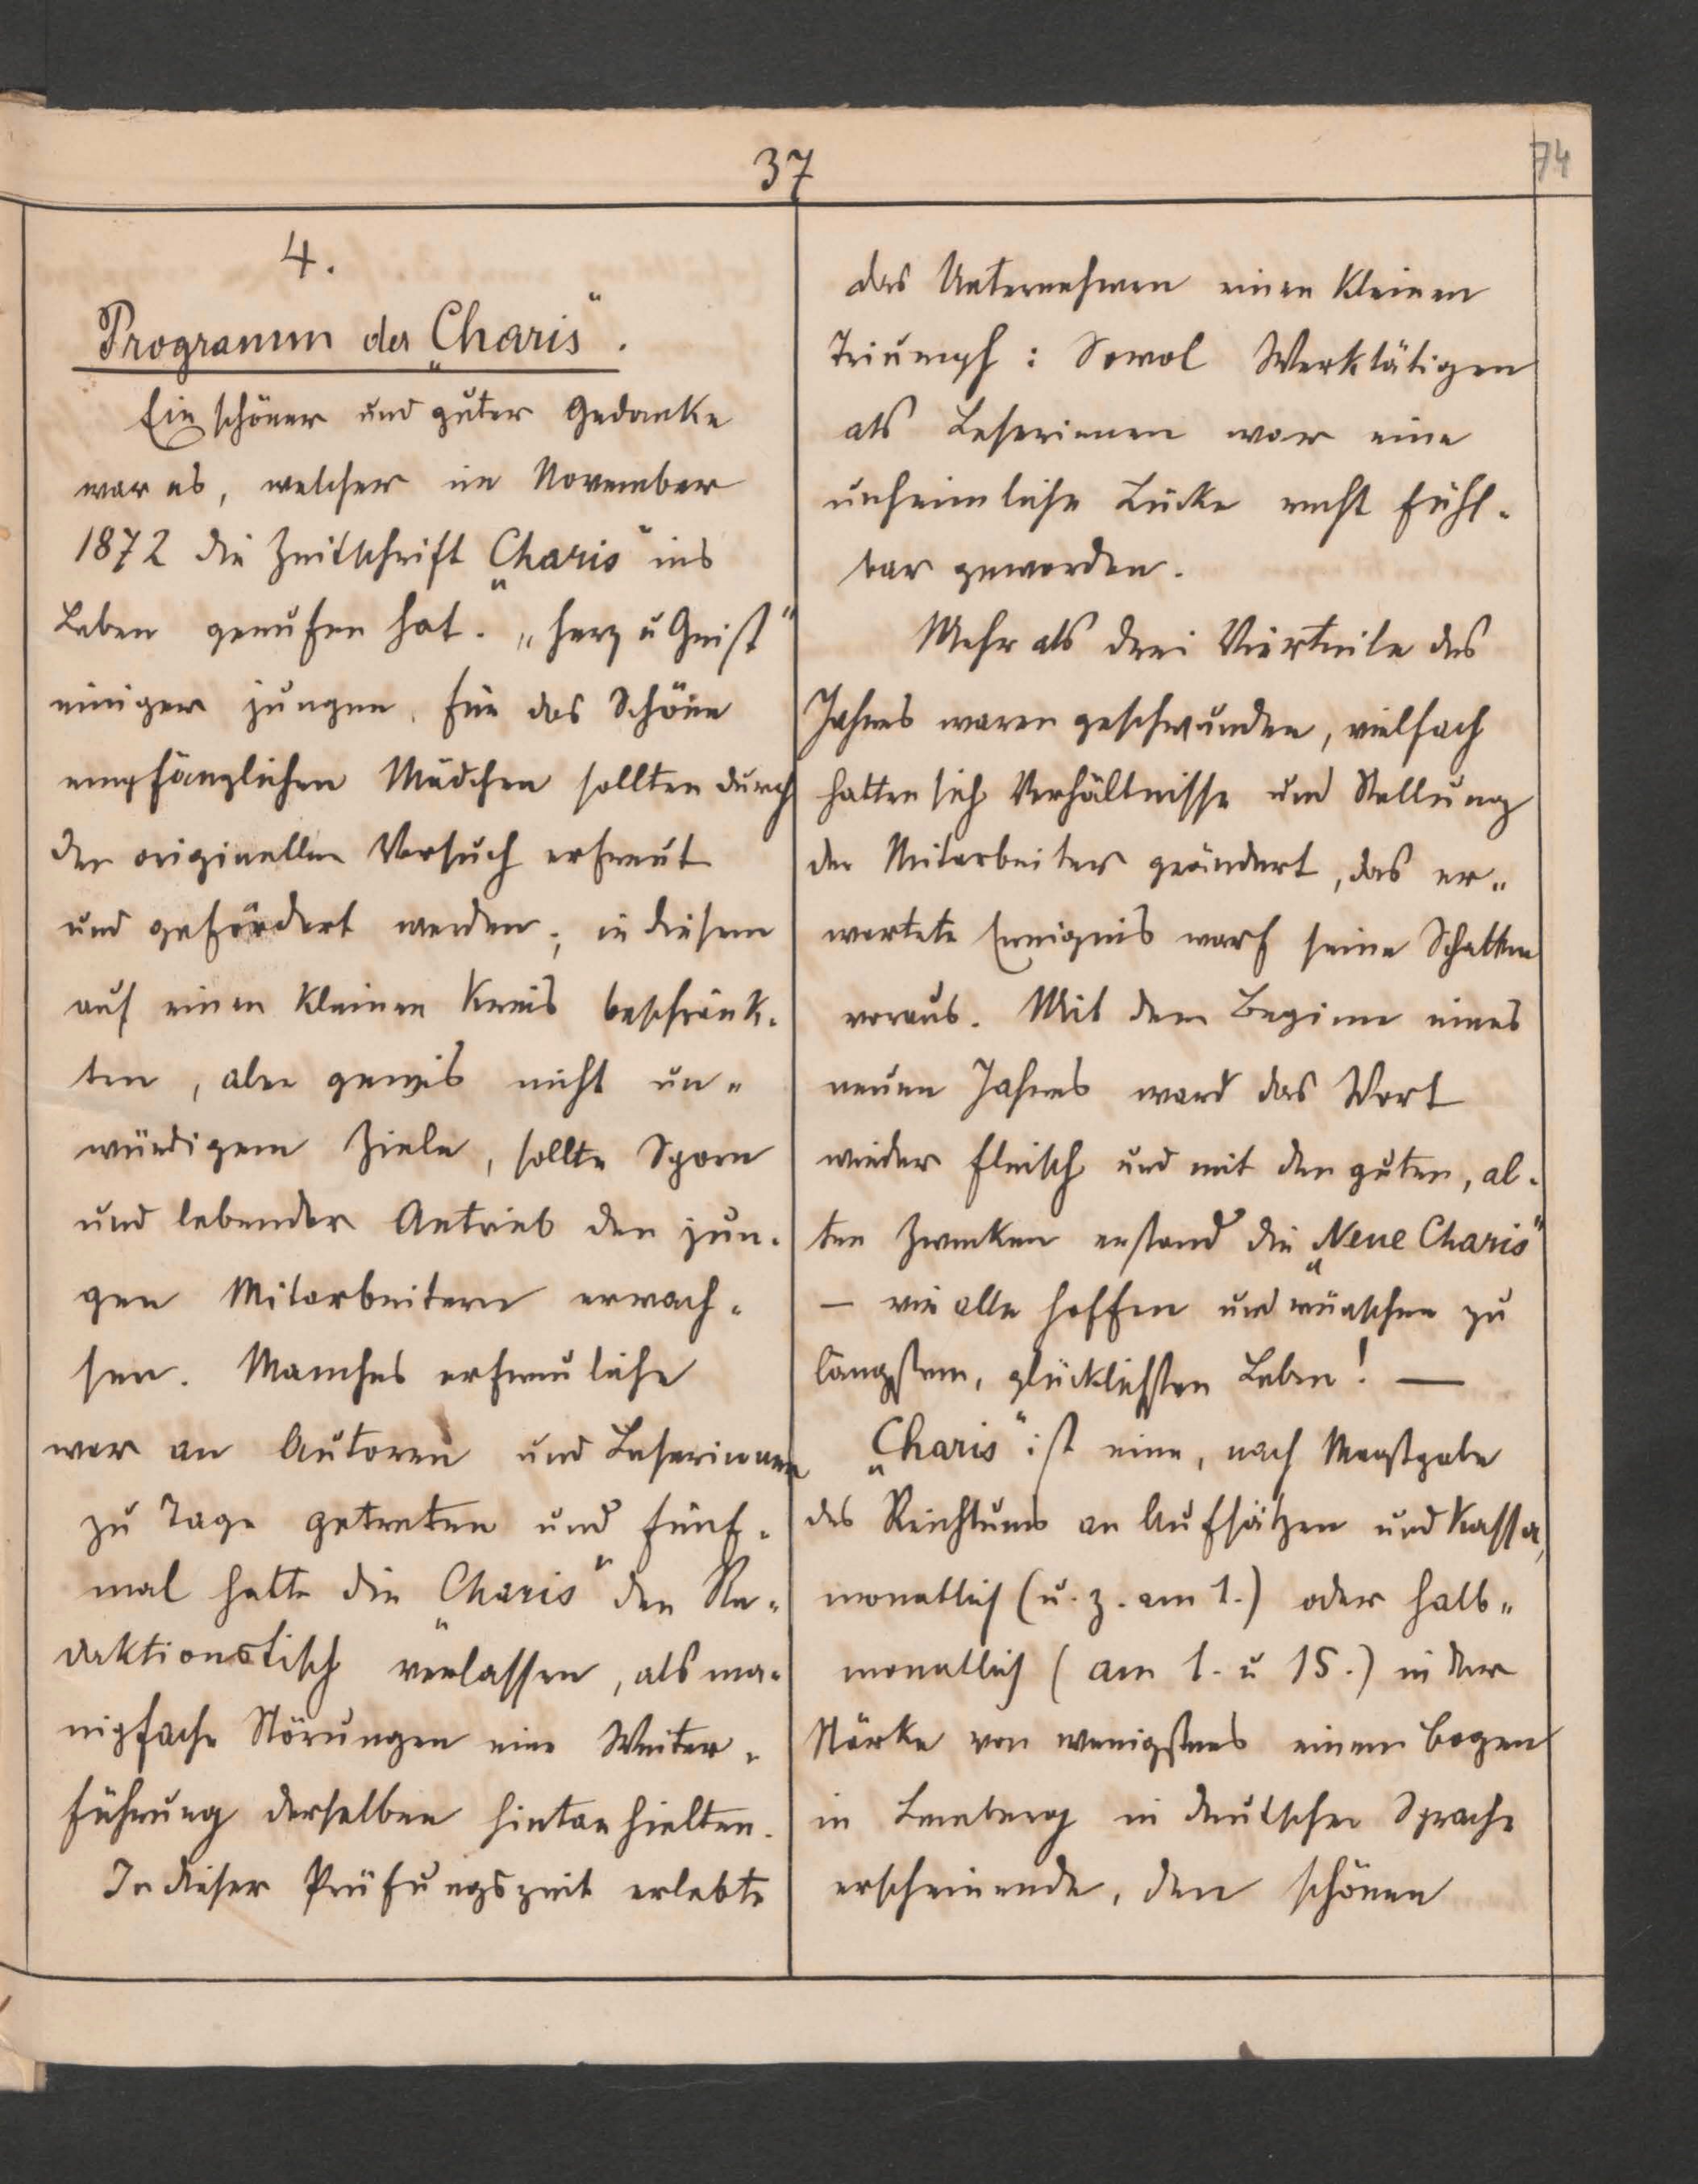 37
74
4.
Programm der „Charis".
Ein schöner und guter Gedanke
war es, welcher im November
1872 die Zeitschrift „Charis" ins
Leben gerufen hat. „Herz u Geist"
einiger jungen, für das Schöne
empfänglichen Mädchen sollten durch
den originellen Versuch erfreut
und gefördert werden; in diesem
auf einen kleinen Kreis beschränk-
ten, aber gewis nicht un-
würdigem Ziele, sollte Sporn
und lebender Antrieb den jun-
gen Mitarbeitern erwach-
sen. Manches erfreuliche
war an Autoren und Leserinnen
zu Tage getreten und fünf-
mal hatte die „Charis" den Re-
daktionstisch verlassen, als ma-
nigfache Störungen eine Weiter-
führung derselben hintanhielten.
In dieser Prüfungszeit erlebte
das Unternehmen einen kleinen
Triumph: Sowol Werktätigen
als Leserinnen war eine
unheimliche Lücke recht fühl-
bar geworden.
Mehr als drei Vierteile des
Jahres waren geschwunden, vielfach
hatten sich Verhältnisse und Stellung
der Mitarbeiter geändert, das er-
wartete Ereignis warf seine Schatten
voraus. Mit dem Beginne eines
neuen Jahres ward das Wort
wieder Fleisch und mit den guten, al-
ten Zwecken erstand die „Neue Charis"
— wie alle hoffen und wünschen zu
längstem, glücklichsten Leben! —
„Charis" ist eine, nach Massgabe
des Reichtums an Aufsätzen und Kassa,
monatlich (u. z. am 1.) oder halb-
monatlich (am 1. u 15.) in der
Stärke von wenigstens einem Bogen
in Lemberg in deutscher Sprache
erscheinende, den schönen